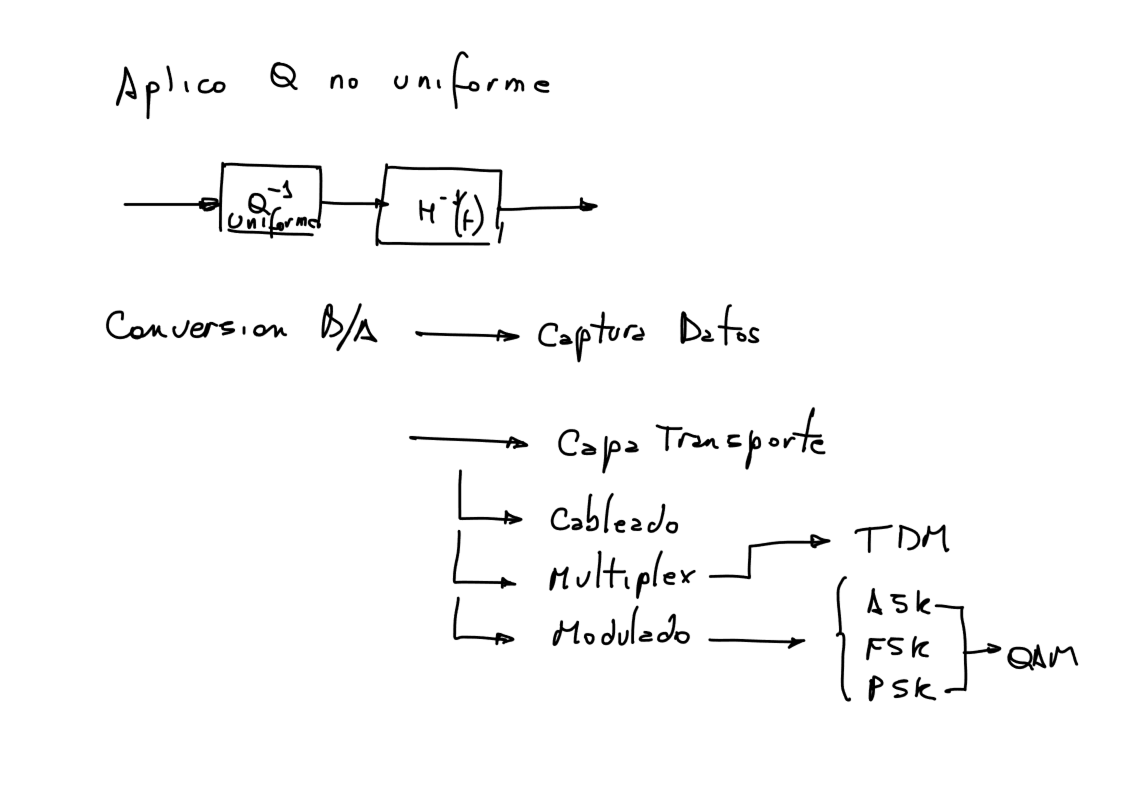 Aplico Q no uniforme
Q⁻¹ uniforme
H⁻¹(f)
Conversion D/A → Captura Datos
→ Capa Transporte
Cableado
Multiplex → TDM
Modulado → { ASK
FSK
PSK
→ QAM